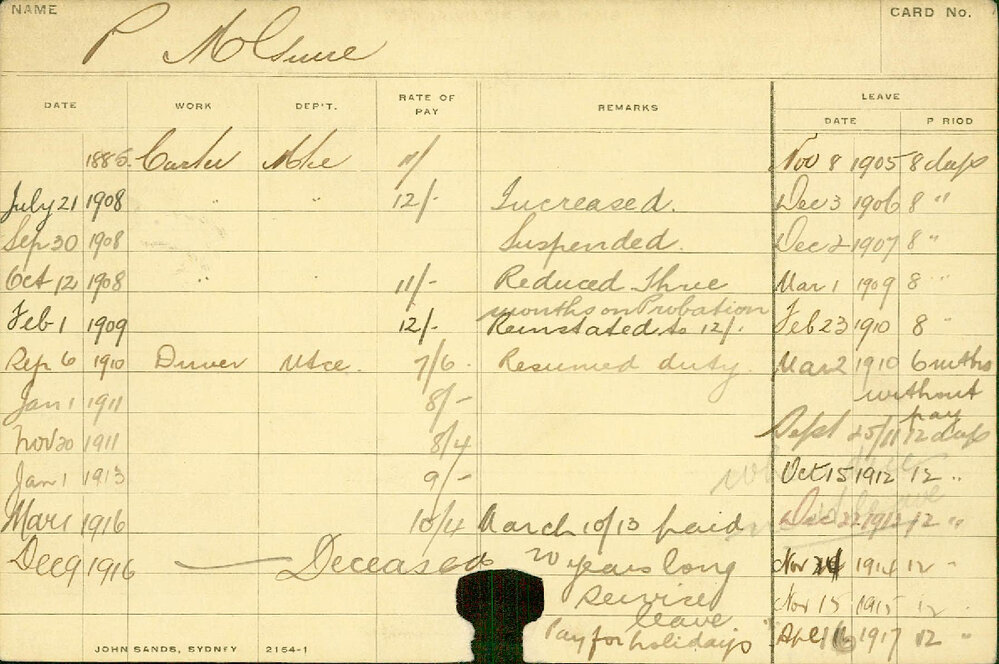 NAME P McGuire CARD No.
DATE WORK DEP'T. RATE OF PAY REMARKS LEAVE
DATE P RIOD
1885. Carter Mtce 11/ Nov 8 1905 8 days
July 21 1908 " " 12/- Increased. Dec 3 1906 8 "
Sep 30 1908 Suspended. Dec 2 1907 8 "
Oct 12 1908 " 11/- Reduced Three Mar 1 1909 8 "
months on Probation
Feb 1 1909 12/- Reinstated to 12/. Feb 23 1910 8 "
Sep 6 1910 Driver Mtce. 7/6. Resumed duty. Mar 2 1910 6 mths
without
pay
Jan 1 1911 8/-
Nov 20 1911 8/4 Sept 25/11 12 days
Jan 1 1913 9/- Oct 15 1912 12 "
Mar 1 1916 10/4 March 10/13 paid Dec 22 1912 "
Dec 9 1916 — Deceased 20 years long Nov 1914 12 "
service Nov 15 1915 12 "
leave
Pay for holidays " Apl 1917 12 "
JOHN SANDS, SYDNEY 2154-1